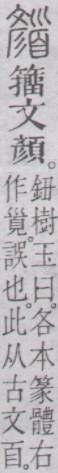 籒文顏。
鈕樹玉曰。各本篆體右
作覓。誤也。此从古文𦣻。